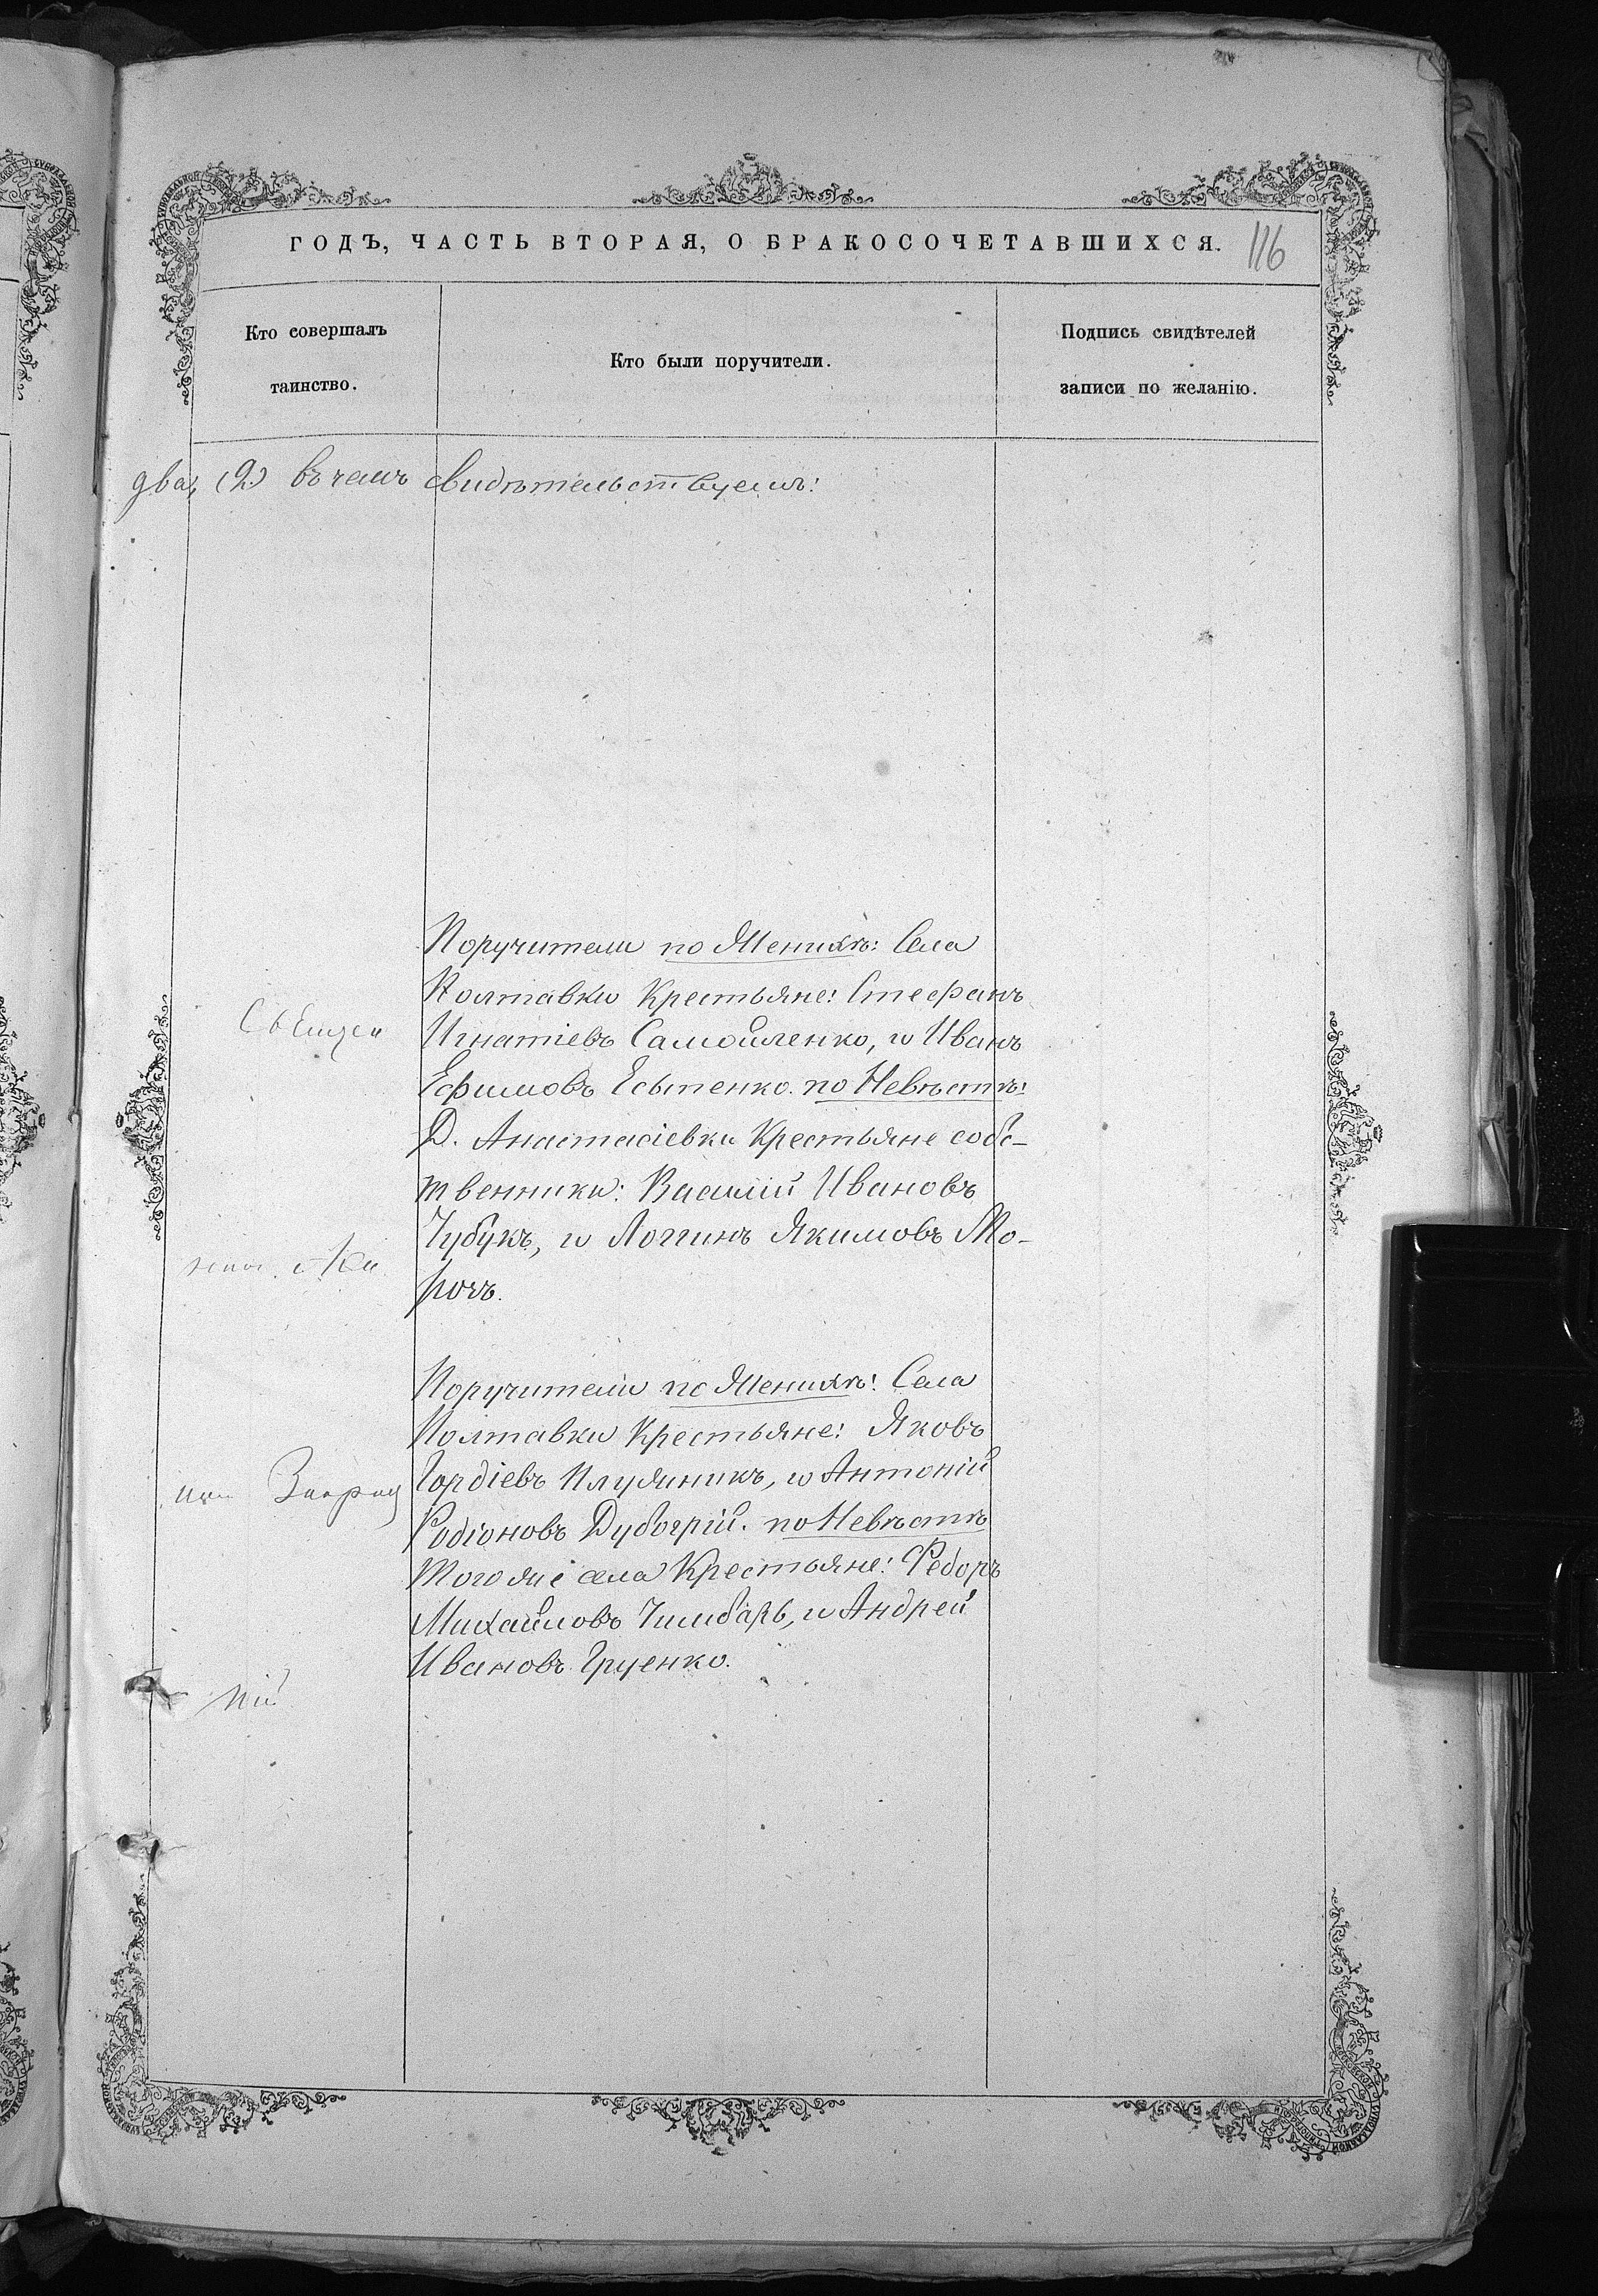 ГОДЪ, ЧАСТЬ ВТОРАЯ, О БРАКОСОЧЕТАВШИХСЯ. 116
Кто совершалъ
таинство.
Кто были поручители.
Подпись свидѣтелей
записи по желанію.
два, (2.) въ чемъ свидѣтельствуемъ:
Священ
Поручители по Женихѣ: Села
Полтавки Крестьяне: Стефанъ
Игнатіевъ Самойленко, и Иванъ
Ефимовъ Есыпенко. по Невѣстѣ:
Д. Анастасіевки Крестьяне собс-
твенники: Василій Ивановъ
Чубукъ, и Логгинъ Якимовъ Мо-
розъ.
Поручители по Женихѣ: Села
Полтавки Крестьяне: Яковъ
Гордіевъ Плужникъ, и Антоній
Родіоновъ Дубогрій. по Невѣстѣ
Того же села Крестьяне: Федоръ
Михайловъ Чимбарь, и Андрей
Ивановъ Гуценко.